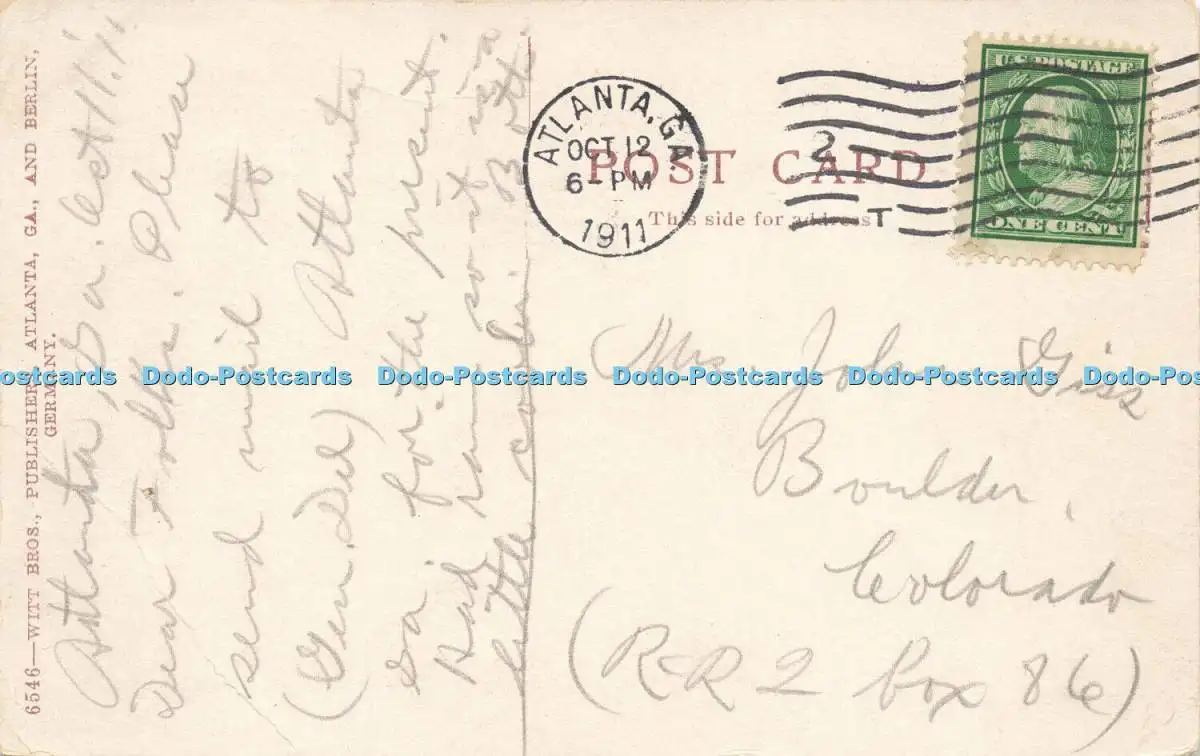 6546—WITT BROS., PUBLISHERS, ATLANTA, GA., AND BERLIN,
GERMANY.
Atlanta, Ga. Oct 11. 11.
Dear Folks. Please
send mail to
(Gen. Del) Atlanta
Ga. for the present.
Had rain so it is a
little cooler.
ATLANTA, GA
OCT 12
6-PM
1911
2
T
U.S. POSTAGE
ONE CENT
POST CARD
This side for address
Mrs John Giss
Boulder,
Colorado
(R R 2 Box 86)
Dodo-Postcards Dodo-Postcards Dodo-Postcards Dodo-Postcards Dodo-Postcards